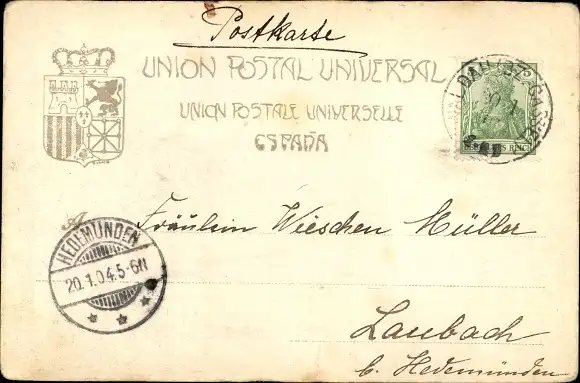 Postkarte
UNION POSTAL UNIVERSAL
UNION POSTALE UNIVERSELLE
ESPAÑA
5
REICH
A
Fräulein Wieschen Müller
HEDEMÜNDEN
20.1.04.5-6N
Laubach
b. Hedemünden